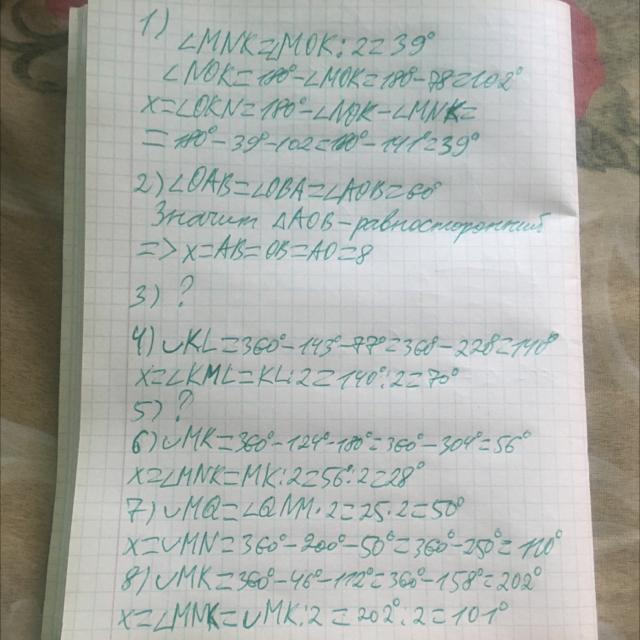 1)
∠MNK=∠MOK:2=39°
∠NOK=180°-∠MOK=180°-78=102°
x=∠OKN=180°-∠NOK-∠MNK=
=180°-39°-102=180°-141°=39°
2) ∠OAB=∠OBA=∠AOB=60°
Значит △AOB=равносторонний
=> x=AB=OB=AO=8
3) ?
4) ∪KL=360°-143°-77°=360°-228=140°
x=∠KML=KL:2=140°:2=70°
5) ?
6) ∪MK=360°-124°-180°=360°-304°=56°
x=∠MNK=MK:2=56:2=28°
7) ∪MQ=∠QNM·2=25·2=50°
x=∪MN=360°-200°-50°=360°-250°=110°
8) ∪MK=360°-46°-112°=360°-158°=202°
x=∠MNK=∪MK:2=202°:2=101°